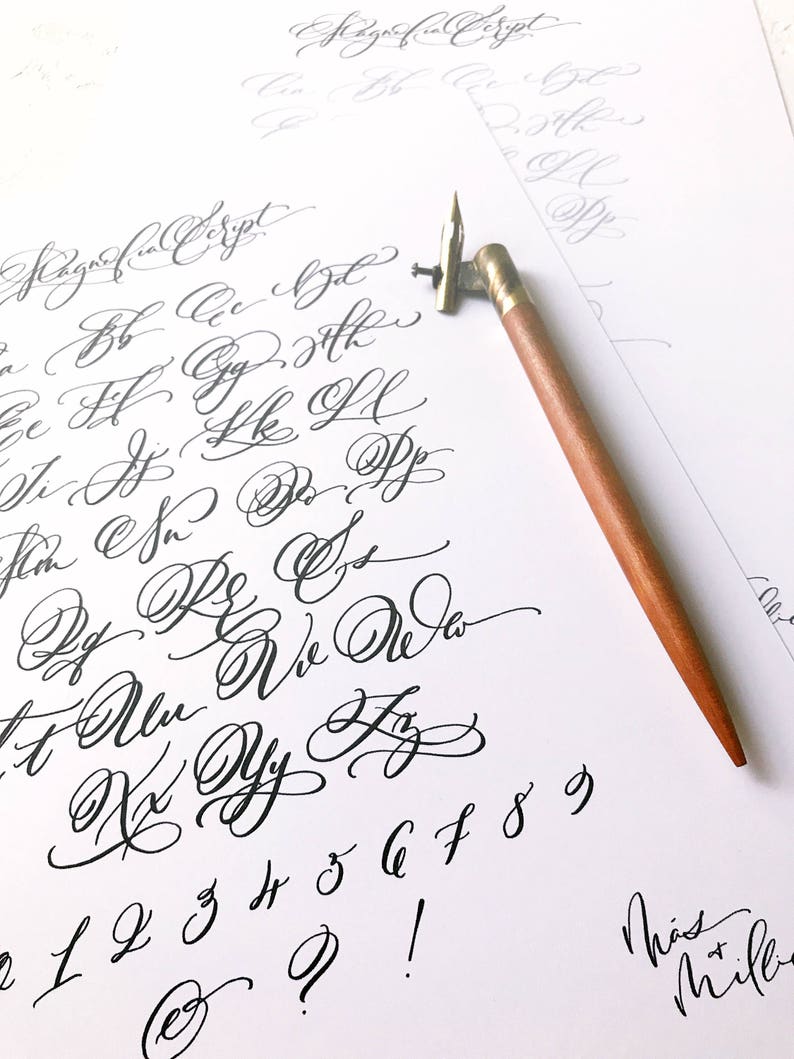 Magnolia Script
Aa Bb Cc Dd
Magnolia Script
Aa Bb Cc Dd
Ee Ff Gg Hh
Hh
Ll
Ii Jj Kk Ll
Pp
Mm Nn Oo Pp
Qq Rr Ss
Tt Uu Vv Ww
Xx Yy Zz
0 1 2 3 4 5 6 7 8 9
& ? !
Más
+
Millie